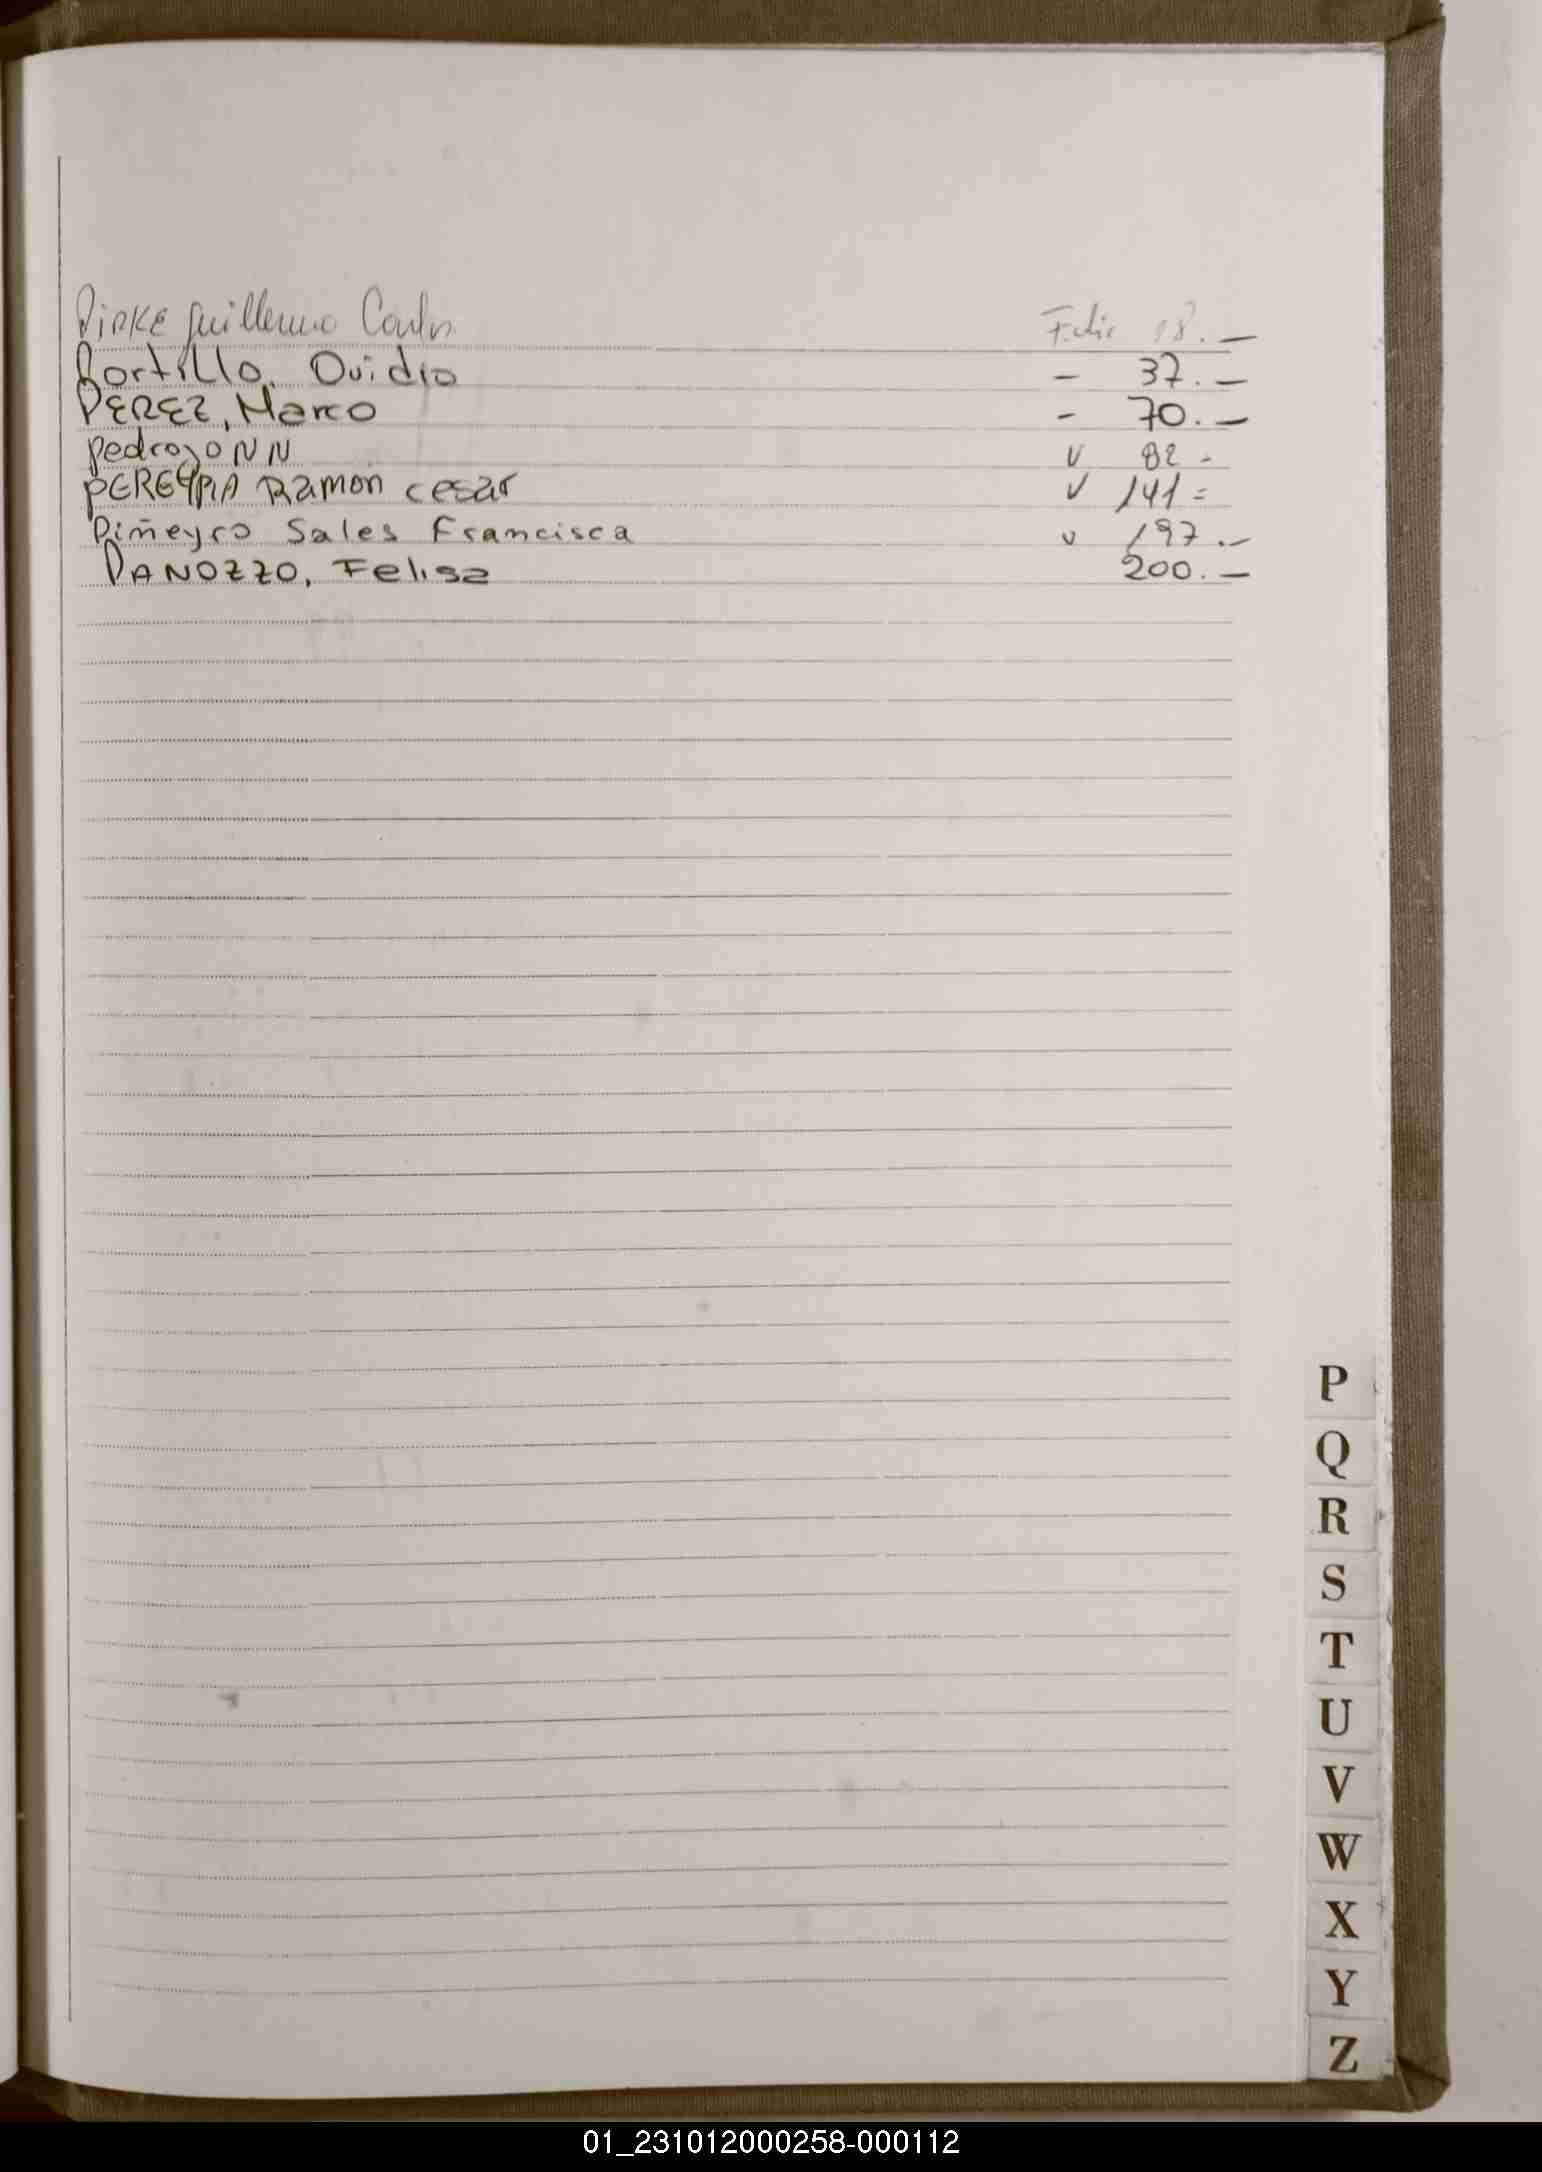 Pirke Guillermo Carlos Folio 18.—
Portillo, Ovidio – 37.—
PEREZ, Marco – 70.—
Pedrozo NN v 82 -
PEREYRA Ramon cesar v 141 =
Piñeyro Sales Francisca v 197.—
PANOZZO, Felisa 200.—
P
Q
R
S
T
U
V
W
X
Y
Z
01_231012000258-000112